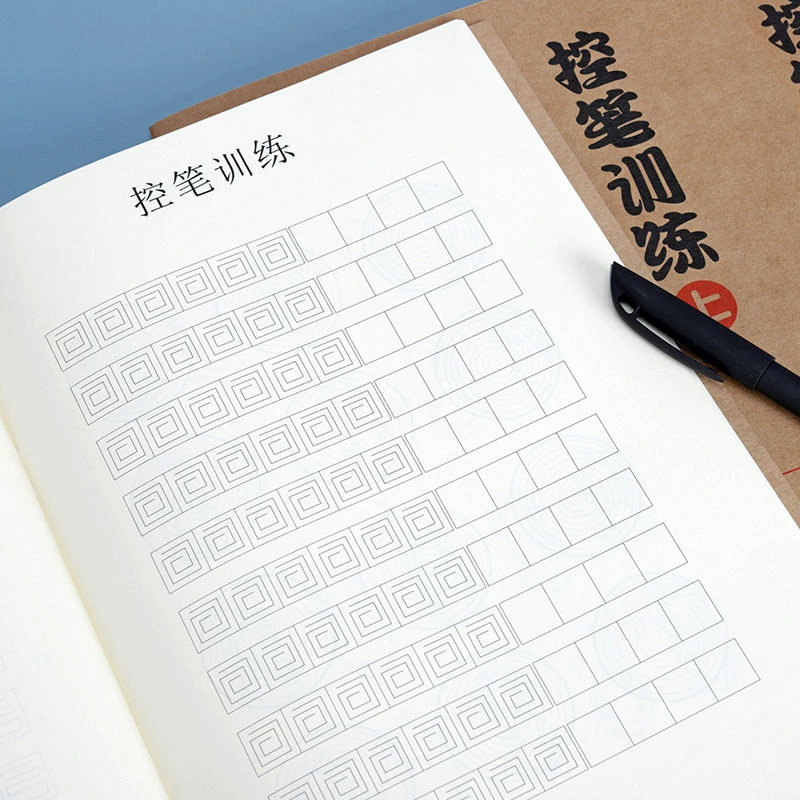 控笔训练
控笔训练
上
控